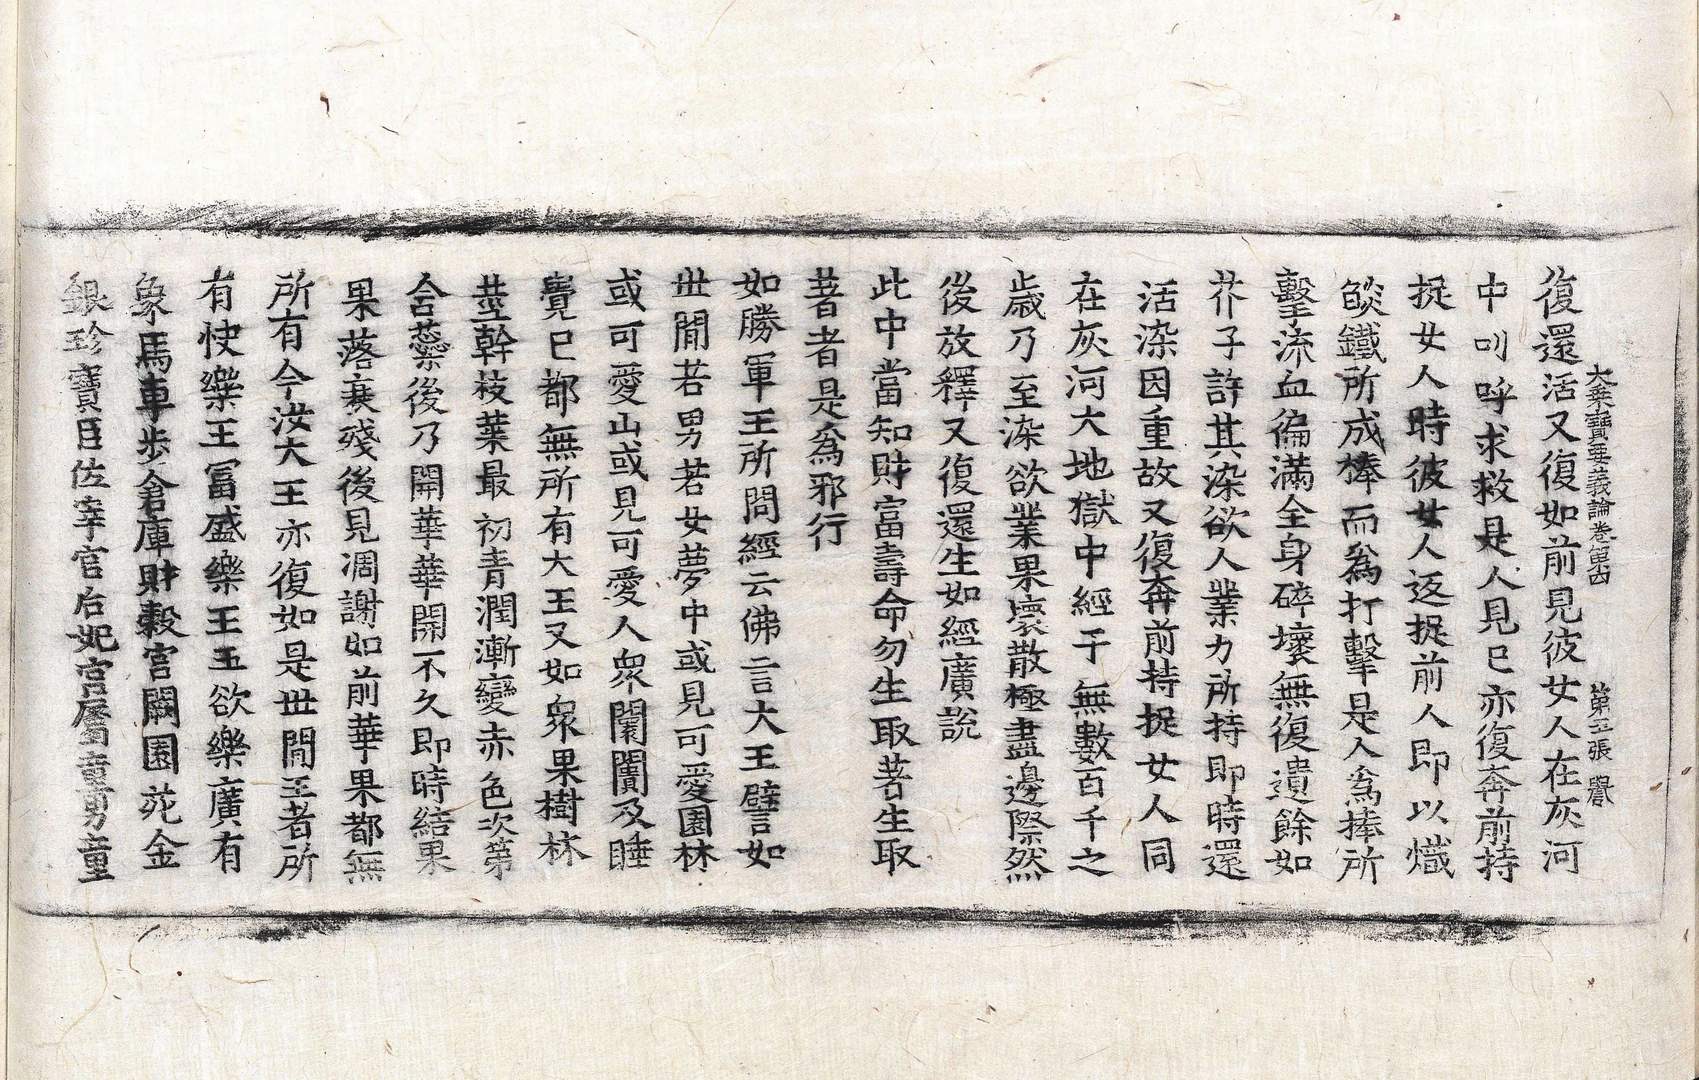 大乘寶要義論卷第四 第五張 譽
復還活又復如前見彼女人在灰河
中叫呼求救是人見已亦復奔前持
捉女人時彼女人返捉前人即以熾
燄鐵所成棒而爲打擊是人爲捧所
擊流血徧滿全身碎壞無復遺餘如
芥子許其染欲人業力所持即時還
活染因重故又復奔前持捉女人同
在灰河大地獄中經于無數百千之
歲乃至染欲業果壞散極盡邊際然
後放釋又復還生如經廣說
此中當知財富壽命勿生取著生取
著者是爲邪行
如勝軍王所問經云佛言大王譬如
世間若男若女夢中或見可愛園林
或可愛山或見可愛人衆闤闠及睡
覺已都無所有大王又如衆果樹林
莖幹枝葉最初青潤漸變赤色次第
含蘂後乃開華華開不久即時結果
果落衰殘後見凋謝如前華果都無
所有今汝大王亦復如是世間王者所
有快樂王富盛樂王五欲樂廣有
象馬車步倉庫財穀宮闕園苑金
銀珍寶臣佐宰官后妃宮屬童男童